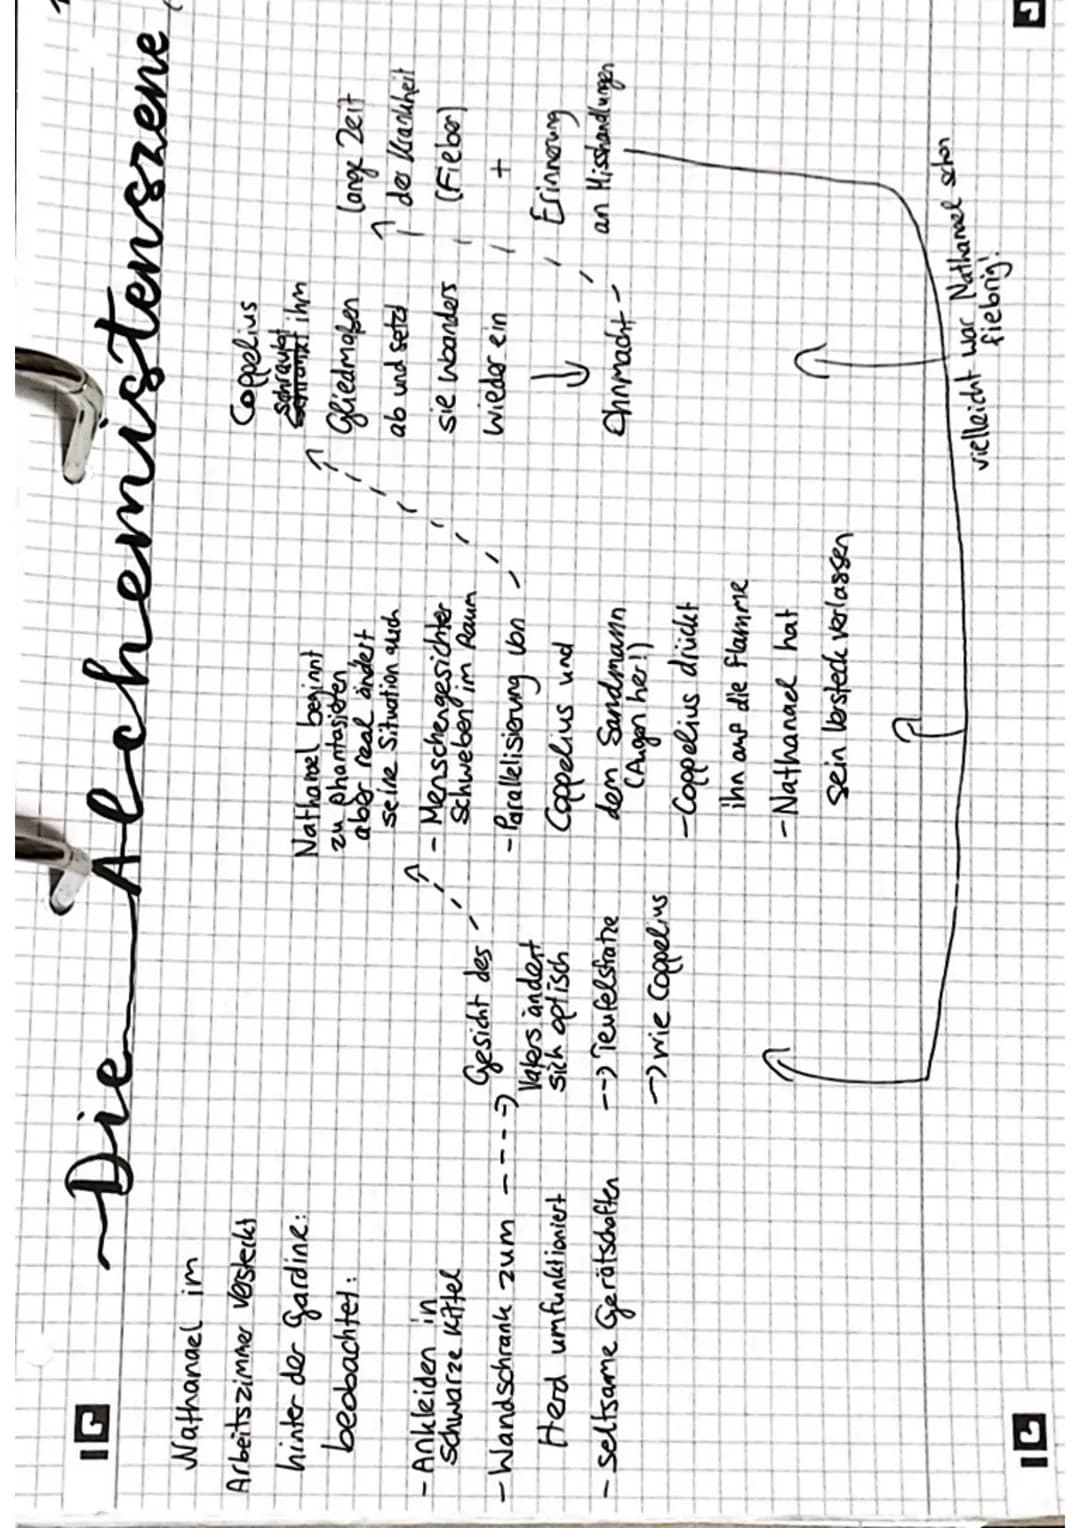 Die Alchemistenszene
Nathanael im
Arbeitszimmer versteckt
hinter der Gardine:
beobachtet:
- Ankleiden in
schwarze Kittel
- Wandschrank zum ---->
Herd umfunktioniert
- seltsame Gerätschaften
Gesicht des
Vaters ändert
sich optisch
--> Teufelsfratze
--> wie Coppelius
Nathanael beginnt
zu phantasieren
aber real ändert
seine Situation auch
- Menschengesichter
schweben im Raum
- Parallelisierung von
Coppelius und
dem Sandmann
(Augen her!)
- Coppelius drückt
ihn auf die Flamme
- Nathanael hat
sein Versteck verlassen
Coppelius
schraubt ihm
Gliedmaßen
ab und setzt
sie woanders
wieder ein
↓
Ohnmacht
lange Zeit
der Krankheit
(Fieber)
+
Erinnerung
an Misshandlungen
vielleicht war Nathanael schon
fiebrig!